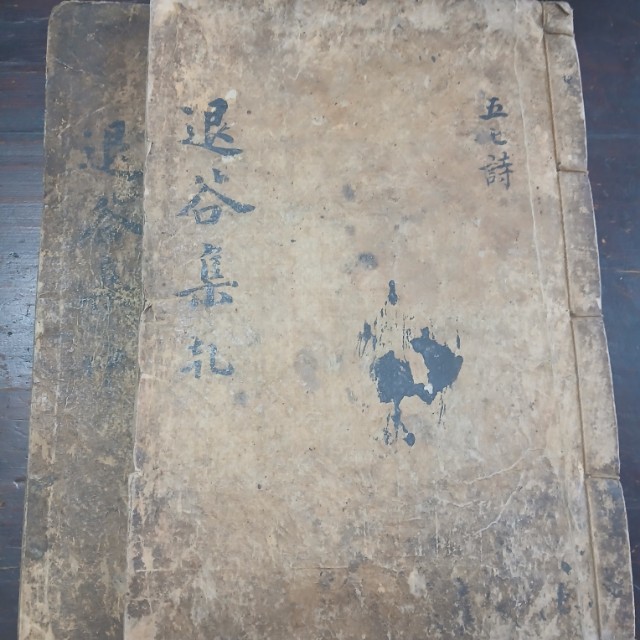 五七詩
退谷集 礼
退谷集